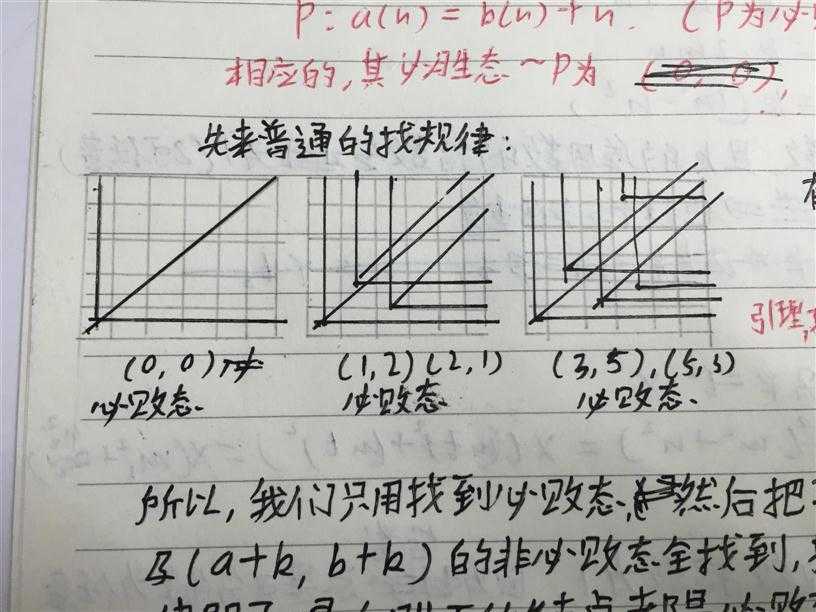 P: a(n) = b(n) + n. (P为必
相应的,其必胜态~P为 (0, 0),
先来普通的找规律:
(0,0)
必败态.
(1,2)(2,1)
必败态.
(3,5),(5,3)
必败态.
引理,
所以,我们只用找到必败态,然后把
及(a+k, b+k)的非必败态全找到,